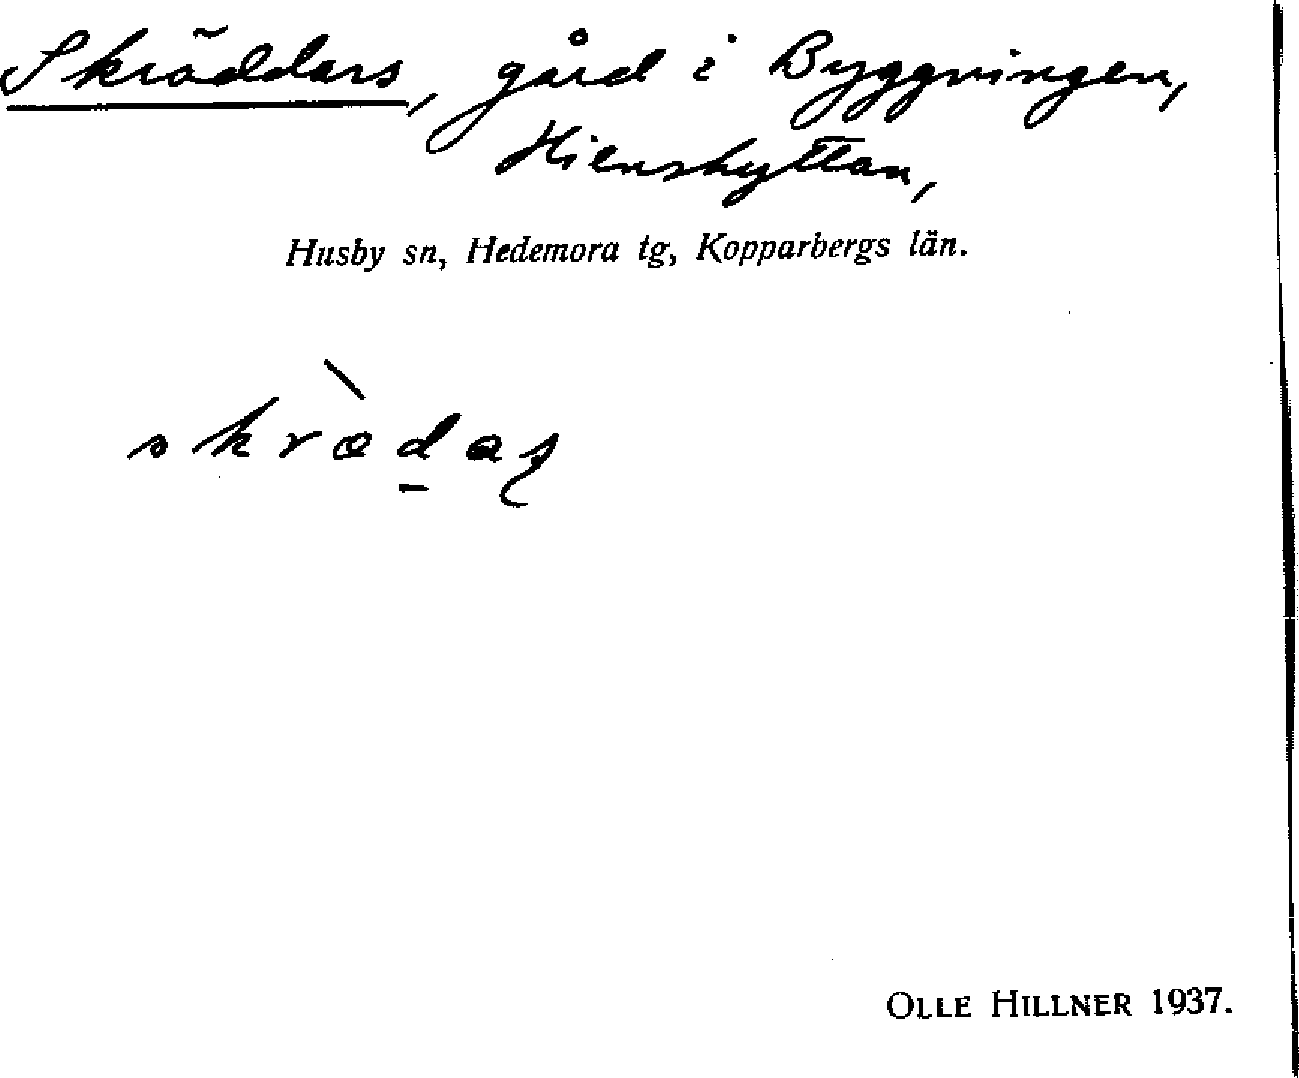 Skräddars, gård i Byggningen,
Hienshyttan,
Husby sn, Hedemora tg, Kopparbergs län.
skræ̀d̠aʂ
OLLE HILLNER 1937.